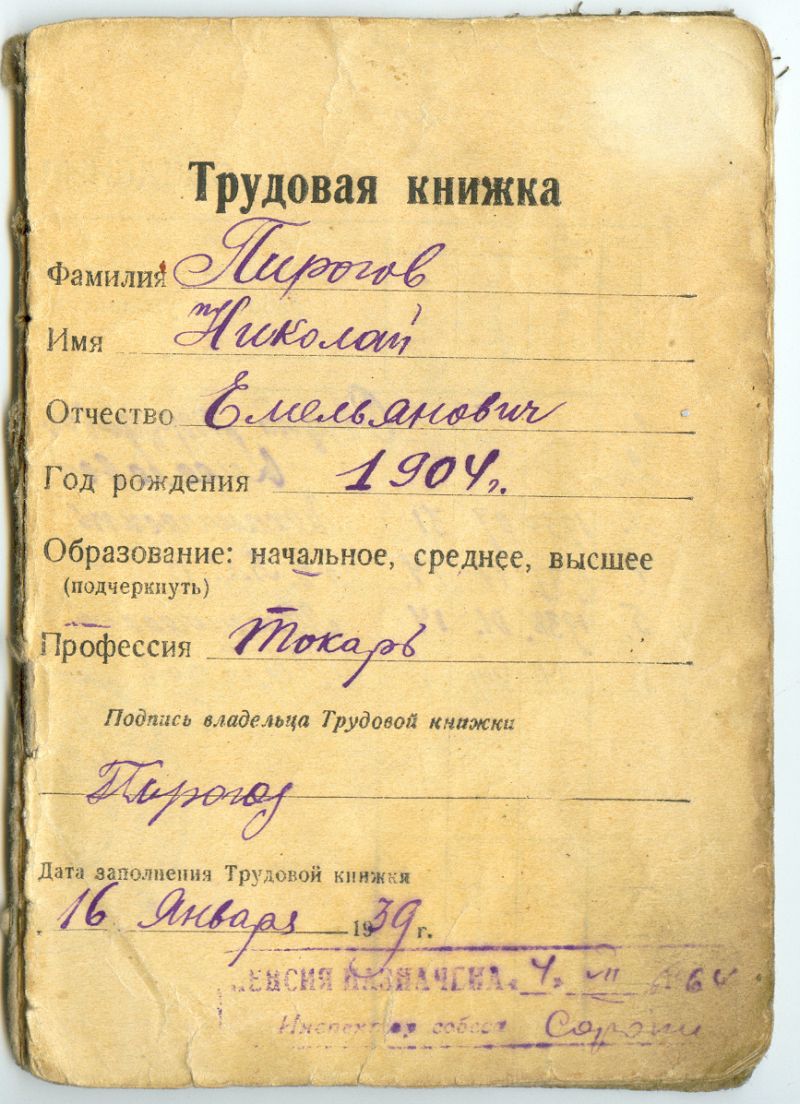 Трудовая книжка
Фамилия Пирогов
Имя Николай
Отчество Емельянович
Год рождения 1904г.
Образование: начальное, среднее, высшее
(подчеркнуть)
Профессия Токарь
Подпись владельца Трудовой книжки
Пирогов
Дата заполнения Трудовой книжки
16 Января 1939 г.
ПЕНСИЯ НАЗНАЧЕНА „4" VII 1964
Инспектор собеса